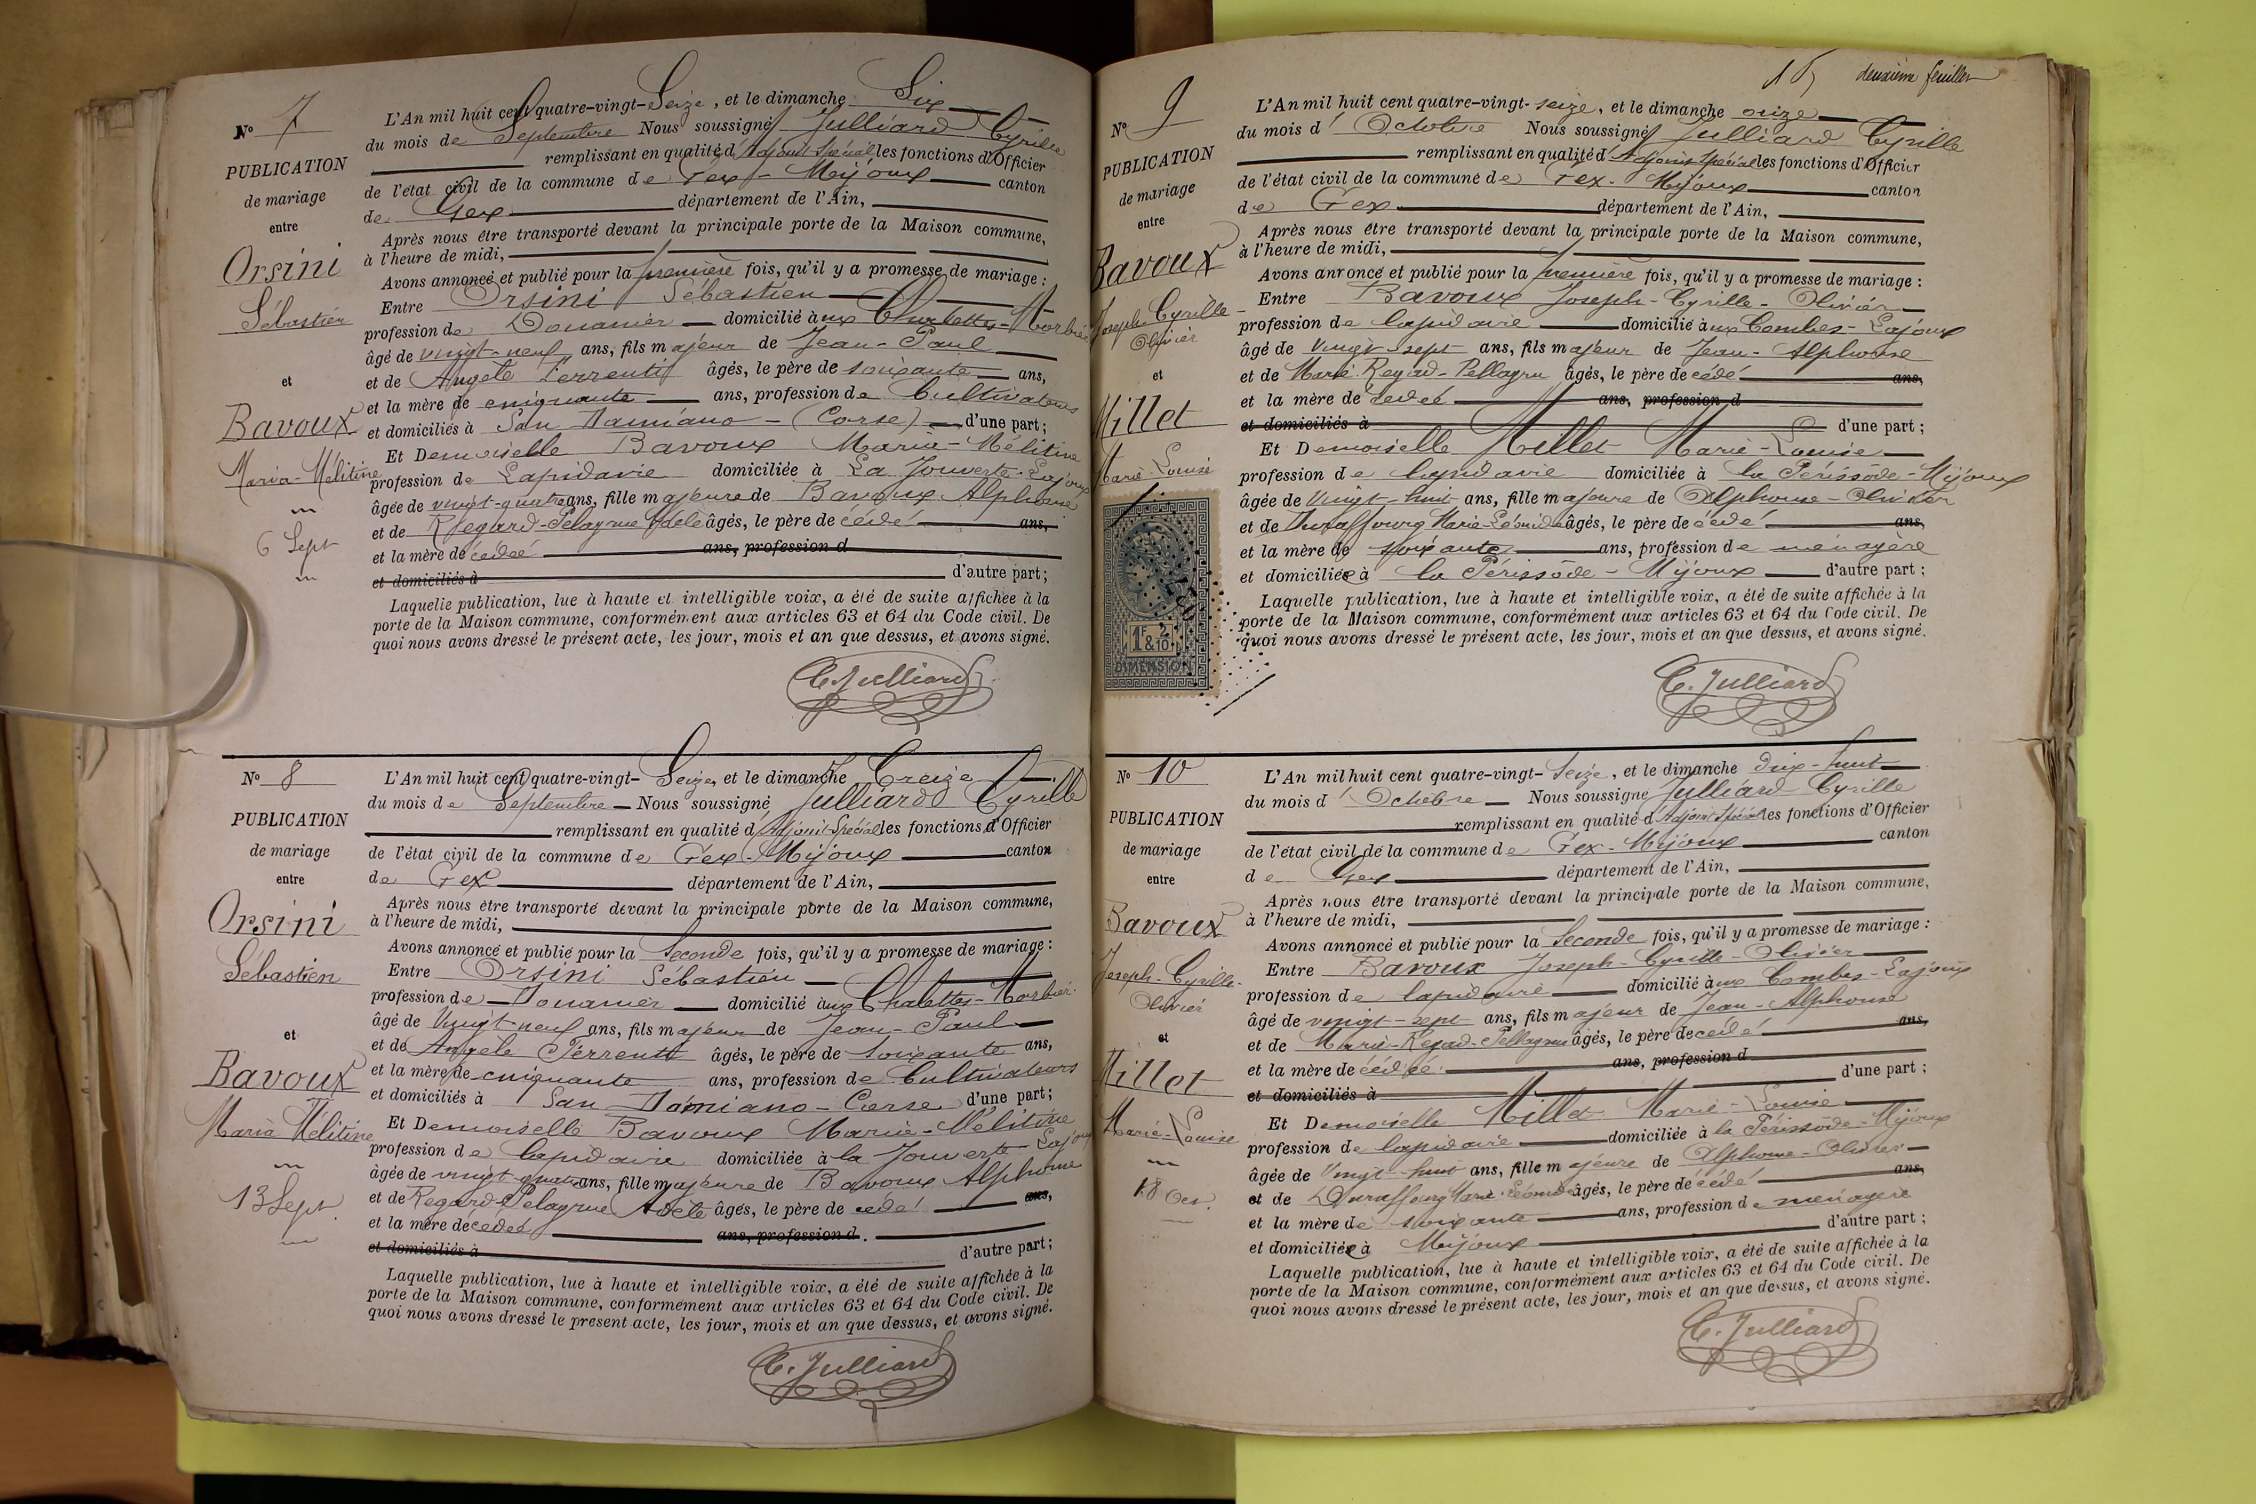 Nº 7
PUBLICATION
de mariage
entre
Orsini
Sébastien
et
Bavoux
Maria-Mélitine
6 Sept
L'An mil huit cent quatre-vingt-Seize, et le dimanche Six
du mois de Septembre Nous soussigné Julliard Cyrille
remplissant en qualité d'Adjoint Spécial les fonctions d'Officier
de l'état civil de la commune de Gex-Mijoux canton
de Gex département de l'Ain,
Après nous être transporté devant la principale porte de la Maison commune,
à l'heure de midi,
Avons annoncé et publié pour la première fois, qu'il y a promesse de mariage :
Entre Orsini Sébastien
profession de Douanier domicilié aux Chalettes-Morbier
âgé de vingt-neuf ans, fils majeur de Jean-Paul
et de Angèle Terrenti âgés, le père de soixante ans,
et la mère de cinquante ans, profession de Cultivateurs
et domiciliés à San Damiano-(Corse) d'une part ;
Et Demoiselle Bavoux Maria-Mélitine
profession de Lapidaire domiciliée à La Jouverte-Lajoux
âgée de vingt-quatre ans, fille majeure de Bavoux Alphonse
et de Regard-Pelagrue Adèle âgés, le père décédé ans,
et la mère décédée ans, profession d
et domiciliés à d'autre part ;
Laquelle publication, lue à haute et intelligible voix, a été de suite affichée à la
porte de la Maison commune, conformément aux articles 63 et 64 du Code civil. De
quoi nous avons dressé le présent acte, les jour, mois et an que dessus, et avons signé.
C. Julliard
Nº 8
PUBLICATION
de mariage
entre
Orsini
Sébastien
et
Bavoux
Maria Mélitine
13 Sept.
L'An mil huit cent quatre-vingt-Seize, et le dimanche Treize
du mois de Septembre Nous soussigné Julliard Cyrille
remplissant en qualité d'Adjoint Spécial les fonctions d'Officier
de l'état civil de la commune de Gex-Mijoux canton
de Gex département de l'Ain,
Après nous être transporté devant la principale porte de la Maison commune,
à l'heure de midi,
Avons annoncé et publié pour la Seconde fois, qu'il y a promesse de mariage :
Entre Orsini Sébastien
profession de Douanier domicilié aux Chalettes-Morbier
âgé de Vingt-neuf ans, fils majeur de Jean-Paul
et de Angèle Terrenti âgés, le père de soixante ans,
et la mère de cinquante ans, profession de Cultivateurs
et domiciliés à San Damiano-Corse d'une part ;
Et Demoiselle Bavoux Maria-Mélitine
profession de lapidaire domiciliée à la Jouverte-Lajoux
âgée de vingt-quatre ans, fille majeure de Bavoux Alphonse
et de Regard-Pelagrue Adèle âgés, le père décédé ans,
et la mère décédée ans, profession d
et domiciliés à d'autre part ;
Laquelle publication, lue à haute et intelligible voix, a été de suite affichée à la
porte de la Maison commune, conformément aux articles 63 et 64 du Code civil. De
quoi nous avons dressé le présent acte, les jour, mois et an que dessus, et avons signé.
C. Julliard
deuxième feuillet
Nº 9
PUBLICATION
de mariage
entre
Bavoux
Joseph-Cyrille-
Olivier
et
Millet
Marie-Louise
1F 2
& 10
DIMENSION
L'An mil huit cent quatre-vingt-seize, et le dimanche onze
du mois d'Octobre Nous soussigné Julliard Cyrille
remplissant en qualité d'Adjoint Spécial les fonctions d'Officier
de l'état civil de la commune de Gex-Mijoux canton
de Gex département de l'Ain,
Après nous être transporté devant la principale porte de la Maison commune,
à l'heure de midi,
Avons annoncé et publié pour la première fois, qu'il y a promesse de mariage :
Entre Bavoux Joseph-Cyrille-Olivier
profession de lapidaire domicilié aux Combes-Lajoux
âgé de vingt-sept ans, fils majeur de Jean-Alphonse
et de Marie Regad-Pellagru âgés, le père décédé ans,
et la mère décédée ans, profession d
et domiciliés à d'une part ;
Et Demoiselle Millet Marie-Louise
profession de lapidaire domiciliée à la Périssode-Mijoux
âgée de Vingt-huit ans, fille majeure de Alphonse-Olivier
et de Duraffourg Marie-Léonide âgés, le père décédé ans,
et la mère de soixante ans, profession de ménagère
et domiciliée à la Périssode-Mijoux d'autre part ;
Laquelle publication, lue à haute et intelligible voix, a été de suite affichée à la
porte de la Maison commune, conformément aux articles 63 et 64 du Code civil. De
quoi nous avons dressé le présent acte, les jour, mois et an que dessus, et avons signé.
C. Julliard
Nº 10
PUBLICATION
de mariage
entre
Bavoux
Joseph-Cyrille-
Olivier
et
Millet
Marie-Louise
18 Oct.
L'An mil huit cent quatre-vingt-seize, et le dimanche dix-huit
du mois d'Octobre Nous soussigné Julliard Cyrille
remplissant en qualité d'Adjoint Spécial les fonctions d'Officier
de l'état civil de la commune de Gex-Mijoux canton
de Gex département de l'Ain,
Après nous être transporté devant la principale porte de la Maison commune,
à l'heure de midi,
Avons annoncé et publié pour la Seconde fois, qu'il y a promesse de mariage :
Entre Bavoux Joseph-Cyrille-Olivier
profession de lapidaire domicilié aux Combes-Lajoux
âgé de vingt-sept ans, fils majeur de Jean-Alphonse
et de Marie-Regad-Pellagru âgés, le père décédé ans,
et la mère décédée ans, profession d
et domiciliés à d'une part ;
Et Demoiselle Millet Marie-Louise
profession de lapidaire domiciliée à la Périssode-Mijoux
âgée de Vingt-huit ans, fille majeure de Alphonse-Olivier
et de Duraffourg Marie-Léonide âgés, le père décédé ans,
et la mère de soixante ans, profession de ménagère
et domiciliée à Mijoux d'autre part ;
Laquelle publication, lue à haute et intelligible voix, a été de suite affichée à la
porte de la Maison commune, conformément aux articles 63 et 64 du Code civil. De
quoi nous avons dressé le présent acte, les jour, mois et an que dessus, et avons signé.
C. Julliard